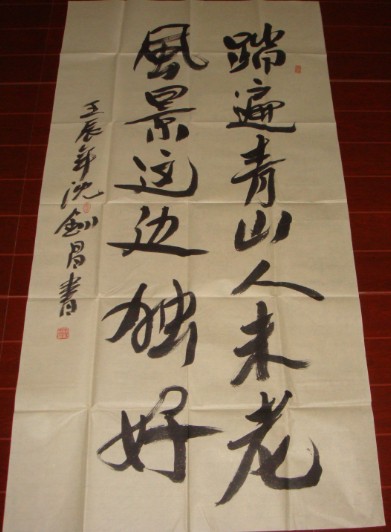 踏遍青山人未老
風景这边独好
壬辰年沈釗昌書